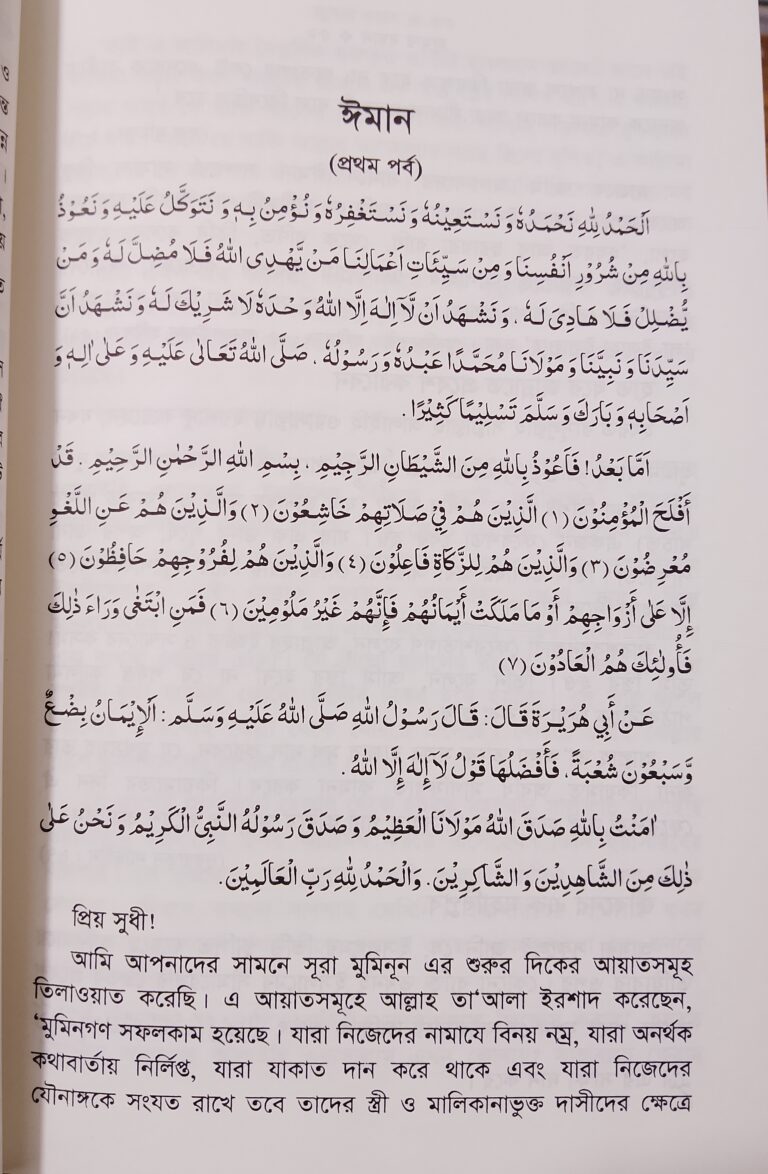 ঈমান
(প্রথম পর্ব)
اَلْحَمْدُ لِلّٰهِ نَحْمَدُهٗ وَنَسْتَعِيْنُهٗ وَنَسْتَغْفِرُهٗ وَنُؤْمِنُ بِهٖ وَنَتَوَكَّلُ عَلَيْهِ وَنَعُوْذُ
بِاللّٰهِ مِنْ شُرُوْرِ اَنْفُسِنَا وَمِنْ سَيِّئَاتِ اَعْمَالِنَا مَنْ يَّهْدِى اللّٰهُ فَلَا مُضِلَّ لَهٗ وَمَنْ
يُّضْلِلْ فَلَا هَادِىَ لَهٗ. وَنَشْهَدُ اَنْ لَّآ اِلٰهَ اِلَّا اللّٰهُ وَحْدَهٗ لَا شَرِيْكَ لَهٗ وَنَشْهَدُ اَنَّ
سَيِّدَنَا وَنَبِيَّنَا وَمَوْلَانَا مُحَمَّدًا عَبْدُهٗ وَرَسُوْلُهٗ. صَلَّى اللّٰهُ تَعَالٰى عَلَيْهِ وَعَلٰى اٰلِهٖ وَ
اَصْحَابِهٖ وَبَارَكَ وَسَلَّمَ تَسْلِيْمًا كَثِيْرًا.
اَمَّا بَعْدُ! فَاَعُوْذُ بِاللّٰهِ مِنَ الشَّيْطَانِ الرَّجِيْمِ. بِسْمِ اللّٰهِ الرَّحْمٰنِ الرَّحِيْمِ. قَدْ
أَفْلَحَ الْمُؤْمِنُوْنَ (١) الَّذِيْنَ هُمْ فِيْ صَلَاتِهِمْ خَاشِعُوْنَ (٢) وَالَّذِيْنَ هُمْ عَنِ اللَّغْوِ
مُعْرِضُوْنَ (٣) وَالَّذِيْنَ هُمْ لِلزَّكَاةِ فَاعِلُوْنَ (٤) وَالَّذِيْنَ هُمْ لِفُرُوْجِهِمْ حَافِظُوْنَ (٥)
إِلَّا عَلٰى أَزْوَاجِهِمْ أَوْ مَا مَلَكَتْ أَيْمَانُهُمْ فَإِنَّهُمْ غَيْرُ مَلُوْمِيْنَ (٦) فَمَنِ ابْتَغٰى وَرَاءَ ذٰلِكَ
فَأُولٰئِكَ هُمُ الْعَادُوْنَ (٧)
عَنْ أَبِي هُرَيْرَةَ قَالَ: قَالَ رَسُوْلُ اللّٰهِ صَلَّى اللّٰهُ عَلَيْهِ وَسَلَّمَ: اَلْإِيْمَانُ بِضْعٌ
وَّسَبْعُوْنَ شُعْبَةً. فَأَفْضَلُهَا قَوْلُ لَا إِلٰهَ إِلَّا اللّٰهُ.
اٰمَنْتُ بِاللّٰهِ صَدَقَ اللّٰهُ مَوْلَانَا الْعَظِيْمُ وَصَدَقَ رَسُوْلُهُ النَّبِيُّ الْكَرِيْمُ وَنَحْنُ عَلٰى
ذٰلِكَ مِنَ الشَّاهِدِيْنَ وَالشَّاكِرِيْنَ. وَالْحَمْدُ لِلّٰهِ رَبِّ الْعَالَمِيْنَ.
প্রিয় সুধী!
আমি আপনাদের সামনে সূরা মুমিনূন এর শুরুর দিকের আয়াতসমূহ
তিলাওয়াত করেছি। এ আয়াতসমূহে আল্লাহ তা‘আলা ইরশাদ করেছেন,
‘মুমিনগণ সফলকাম হয়েছে। যারা নিজেদের নামাযে বিনয় নম্র, যারা অনর্থক
কথাবার্তায় নির্লিপ্ত, যারা যাকাত দান করে থাকে এবং যারা নিজেদের
যৌনাঙ্গকে সংযত রাখে তবে তাদের স্ত্রী ও মালিকানাভুক্ত দাসীদের ক্ষেত্রে